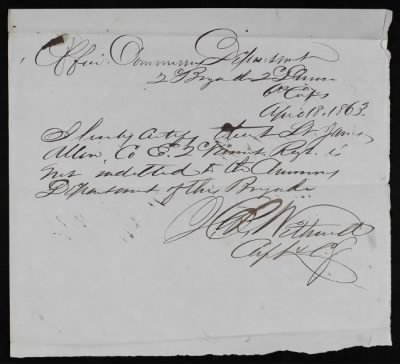 Office Commissary Department
2d Brigade 2d Division
6th Corps
April 18, 1863
I hereby certify that Lt. James
Allen, Co E. 2d Vermt. Regt. is
not indebted to the
Department of this Brigade
Capt & C.S.